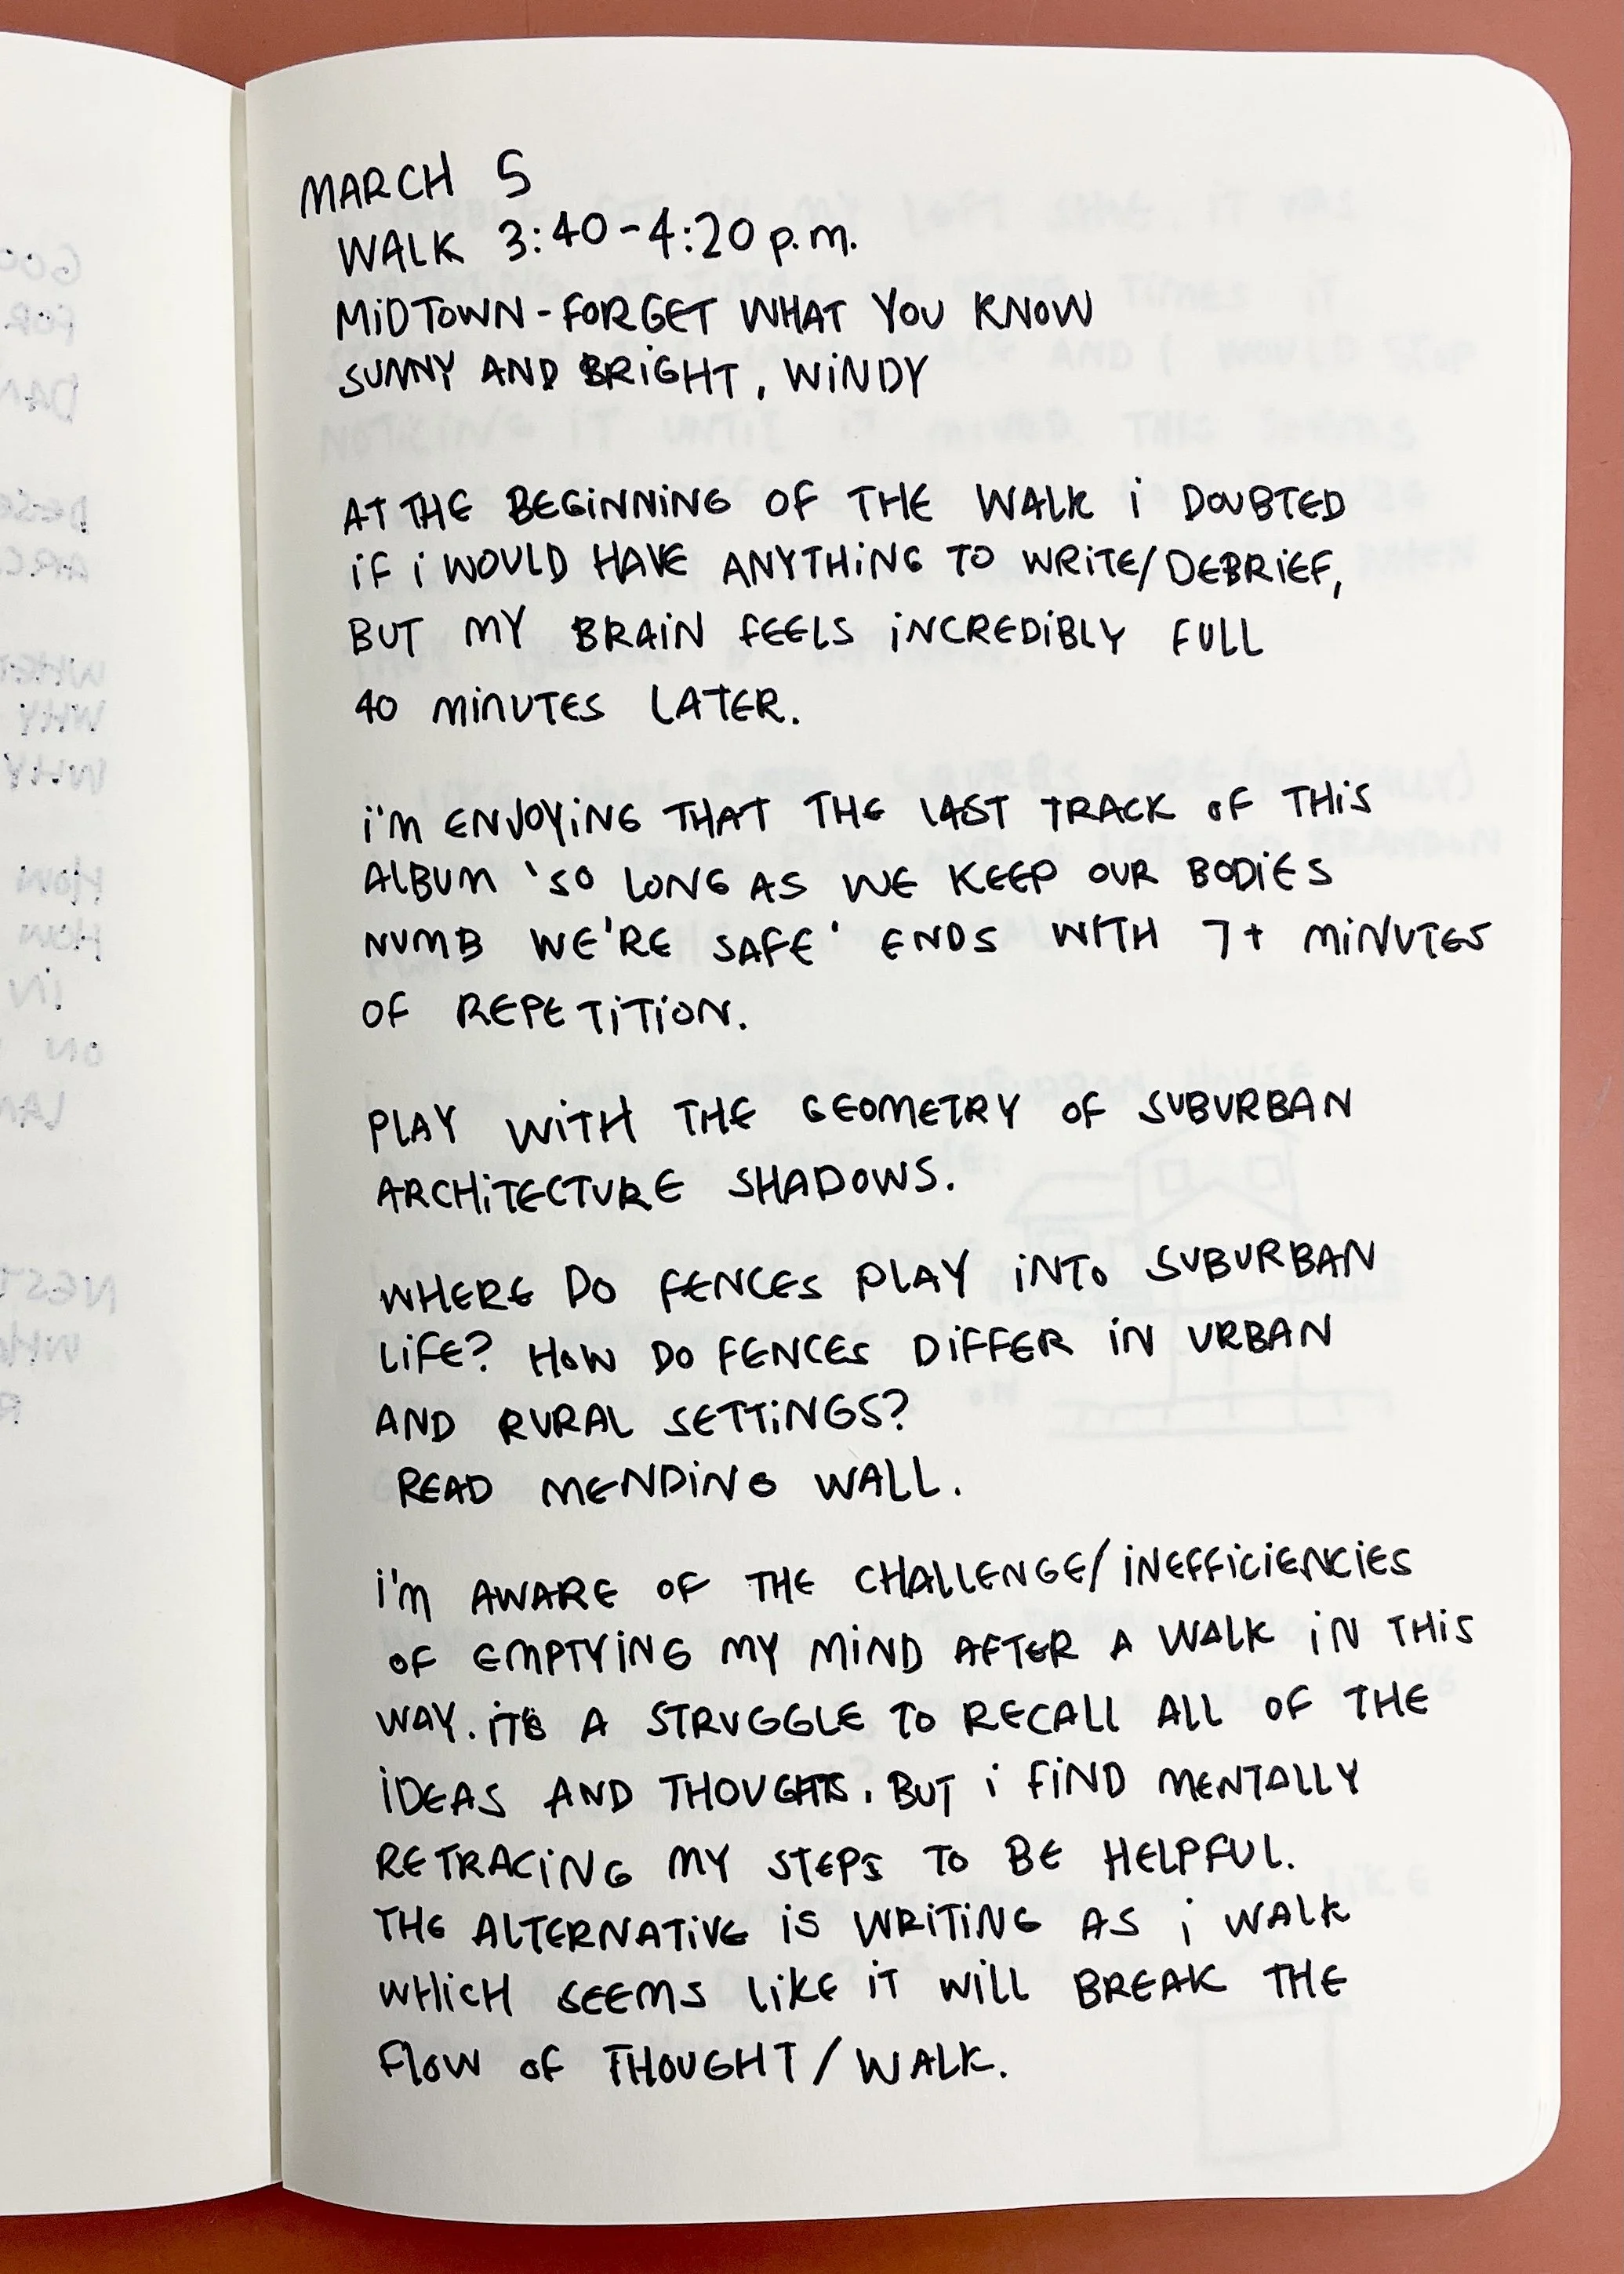 MARCH 5
WALK 3:40-4:20 p.m.
MiDTOWN - FORGET WHAT YOU KNOW
SUNNY AND BRiGHT, WiNDY
AT THE BEGiNNiNG OF THE WALK i DOUBTED
iF i WOULD HAVE ANYTHiNG TO WRiTE/DEBRiEF,
BUT MY BRAiN FEELS iNCREDiBLY FULL
40 MiNUTES LATER.
i'm ENJOYiNG THAT THE LAST TRACK OF THiS
ALBUM 'SO LONG AS WE KEEP OUR BODiES
NUMB WE'RE SAFE' ENDS WiTH 7+ MiNUTES
OF REPETiTiON.
PLAY WiTH THE GEOMETRY OF SUBURBAN
ARCHiTECTURE SHADOWS.
WHERE DO FENCES PLAY iNTO SUBURBAN
LiFE? HOW DO FENCES DiFFER iN URBAN
AND RURAL SETTiNGS?
READ MENDiNG WALL.
i'm AWARE OF THE CHALLENGE/iNEFFiCiENCiES
OF EMPTYiNG MY MiND AFTER A WALK iN THiS
WAY. iTS A STRUGGLE TO RECALL ALL OF THE
iDEAS AND THOUGHTS. BUT i FiND MENTALLY
RETRACiNG MY STEPS TO BE HELPFUL.
THE ALTERNATiVE iS WRiTiNG AS i WALK
WHiCH SEEMS LiKE iT WiLL BREAK THE
FLOW OF THOUGHT/WALK.